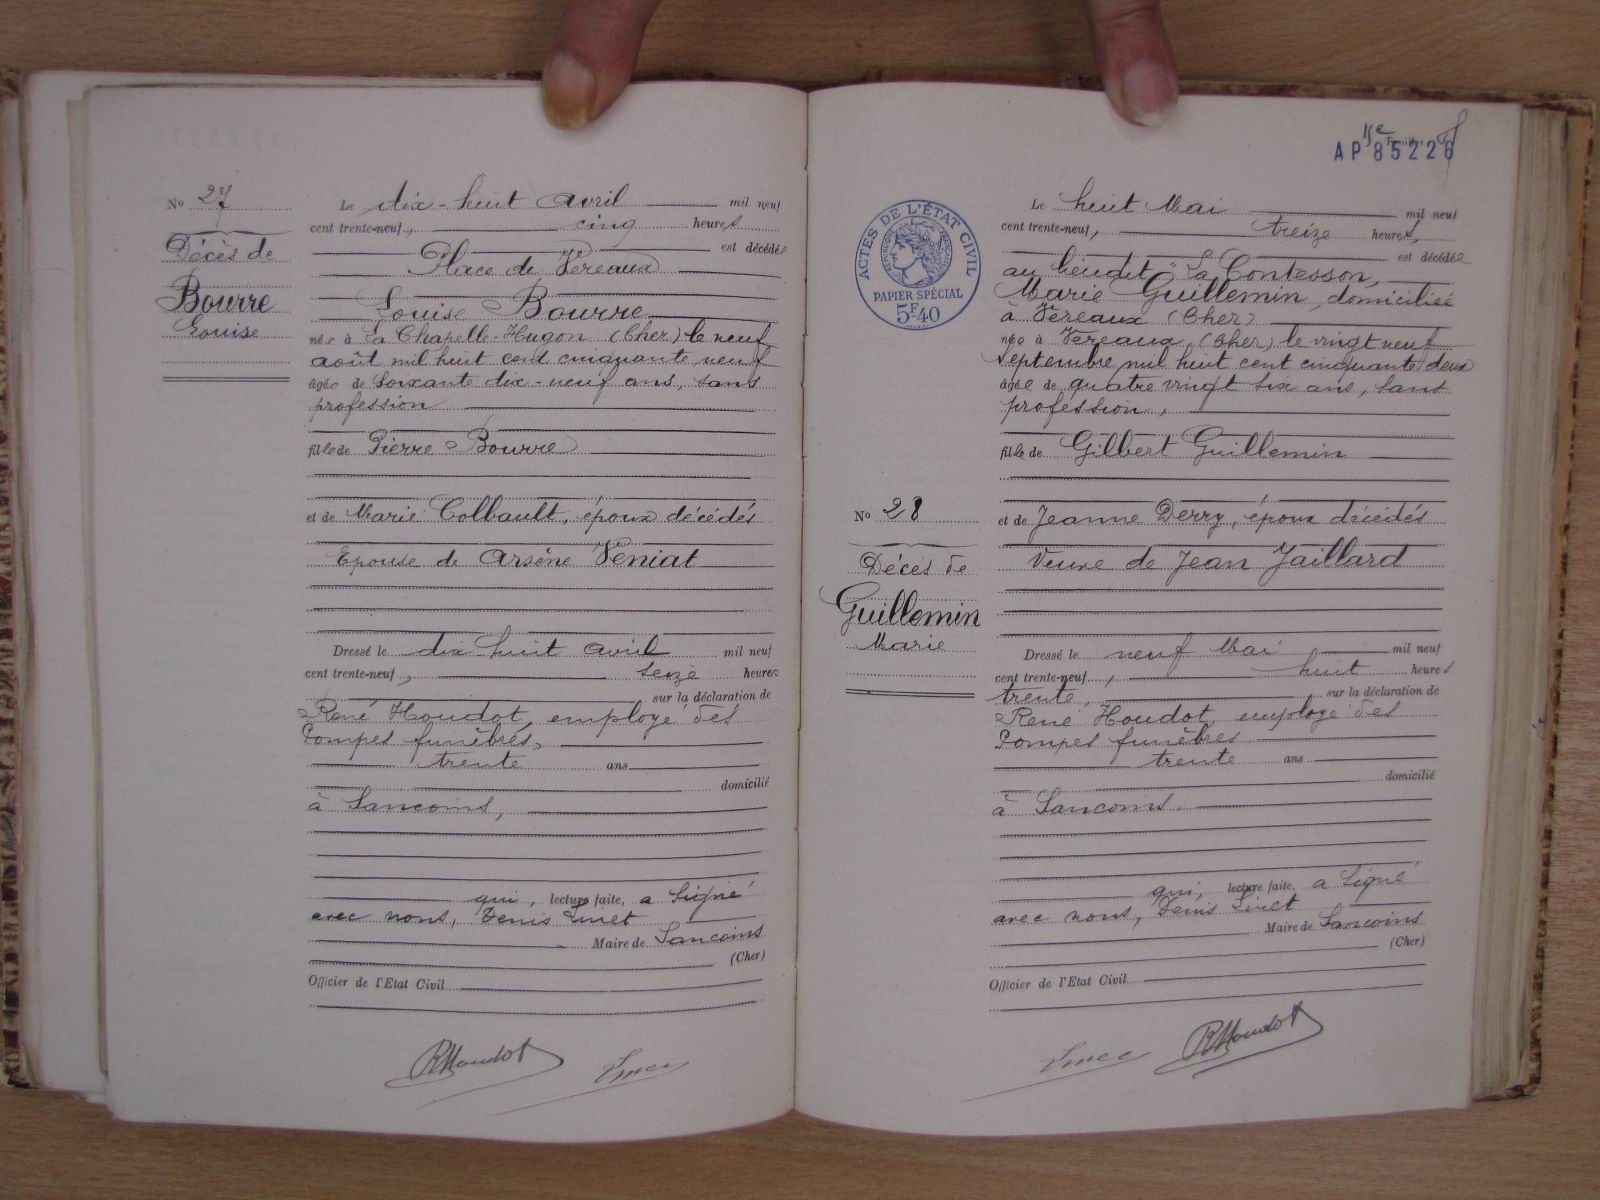 No 27
Décès de
Bourre
Louise
Le dix-huit avril mil neuf
cent trente-neuf, cinq heures
est décédée
Place de Vereaux
Louise Bourre
née à La Chapelle-Hugon (Cher) le neuf
août mil huit cent cinquante neuf
âgée de soixante dix-neuf ans, sans
profession
fille de Pierre Bourre
et de Marie Colbault, époux décédés
Epouse de Arsène Veniat
Dressé le dix huit avril mil neuf
cent trente-neuf, seize heures
sur la déclaration de
René Houdot, employé des
Pompes funèbres,
trente ans
domicilié
à Sancoins,
qui, lecture faite, a signé
avec nous, Denis
Maire de Sancoins
(Cher)
Officier de l'Etat Civil
RHoudot
AP 85226
ACTES DE L'ÉTAT CIVIL
RÉPUBLIQUE FRANÇAISE
PAPIER SPÉCIAL
5F40
No 28
Décès de
Guillemin
Marie
Le huit Mai mil neuf
cent trente-neuf, treize heures,
est décédée
au lieudit "La Contesson,
Marie Guillemin, domiciliée
à Vereaux (Cher)
née à Vereaux, (Cher) le vingt neuf
Septembre mil huit cent cinquante deux
âgée de quatre vingt six ans, sans
profession,
fille de Gilbert Guillemin
et de Jeanne Derry, époux décédés
Veuve de Jean Jaillard
Dressé le neuf Mai mil neuf
cent trente-neuf, huit heures
trente, sur la déclaration de
René Houdot, employé des
Pompes funèbres
trente ans
domicilié
à Sancoins.
qui, lecture faite, a signé
avec nous, Denis
Maire de Sancoins
(Cher)
Officier de l'Etat Civil
RHoudot